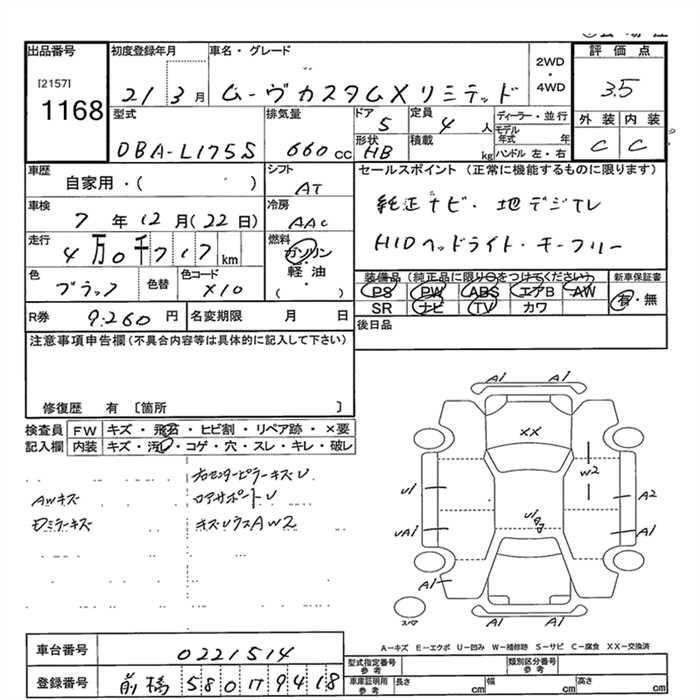 出品番号
[2157]
1168
初度登録年月
21 3月
車名・グレード
ムーヴカスタムXリミテッド
2WD
・
4WD
評価点
3.5
外装 内装
C C
型式
DBA-L175S
排気量
660cc
ドア
5
定員
4人
形状
HB
積載
kg
ディーラー・並行
モデル年式 年
ハンドル 左・右
車歴
自家用・( )
シフト
AT
車検
7年12月(22日)
冷房
AAC
走行
4万0千717km
燃料
ガソリン
・
軽油
・
( )
色
ブラック
色替
色コード
X10
R券 9.260円
名変期限 月 日
セールスポイント(正常に機能するものに限ります)
純正ナビ・地デジTV
HIDヘッドライト・キーフリー
装備品(純正品に限り○をつけてください)
PS PW ABS エアB AW
SR ナビ TV カワ
新車保証書
有・無
後日品
注意事項申告欄(不具合内容等は具体的に記入して下さい)
修復歴 有〔箇所 〕
検査員記入欄
FW キズ・飛石・ヒビ割・リペア跡・×要
内装 キズ・汚れ・コゲ・穴・スレ・キレ・破レ
右センターピラーキズU
AWキズ
ロアサポートU
ドミラーキズ
キズリウスAW2
A1 A1
XX
W2
U1
A2
U1
UA1
A1
A1
A1 A1
スペア
A-キズ E-エクボ U-凹み W-補修跡 S-サビ C-腐食 XX-交換済
車台番号
0221514
登録番号
前橋580け9418
型式指定番号
参考
類別区分番号
参考
車庫証明用
参考
長さ cm
幅 cm
高さ cm